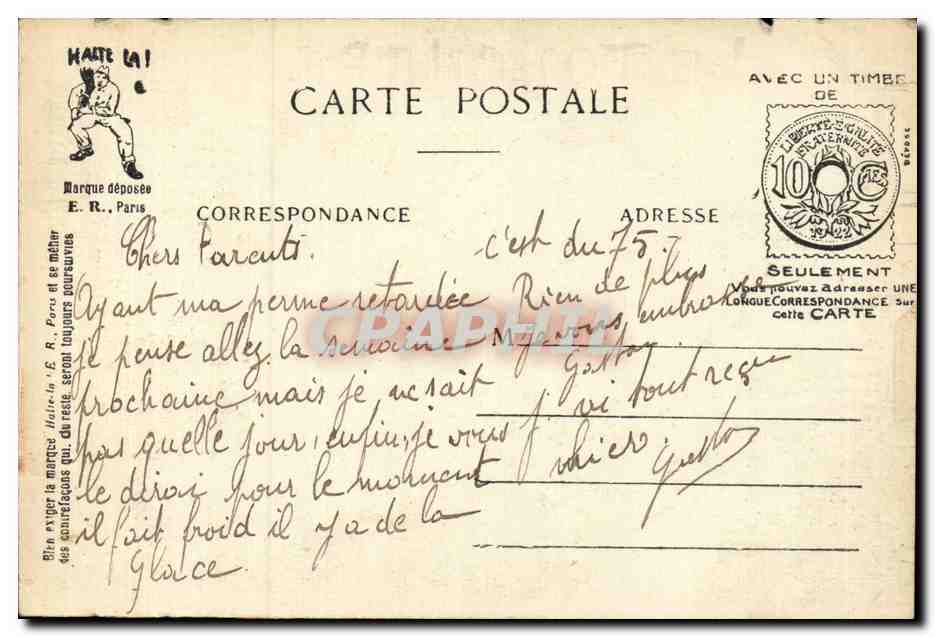 HALTE LA!
Marque déposée
E. R., Paris
CARTE POSTALE
AVEC UN TIMBE
DE
LIBERTE-EGALITE
FRATERNITE
10 Cmes
1922
SEULEMENT
Vous pouvez adresser UNE
LONGUE CORRESPONDANCE sur
cette CARTE
CORRESPONDANCE
ADRESSE
Bien exiger la marque Halte-là! E. R., Paris et se méfier
des contrefaçons qui, du reste, seront toujours poursuivies
Chers Parents.
Ayant ma perme retardée
je pense allez la semaine
prochaine mais je ne sait
pas quelle jour, enfin, je vous
le dirai pour le moment
il fait froid il y a de la
Glace.
c'est du 75.
Rien de plus
M je vous embrasse
Gaston
j' vi tout reçu
hier. Gaston
CPAPHIL